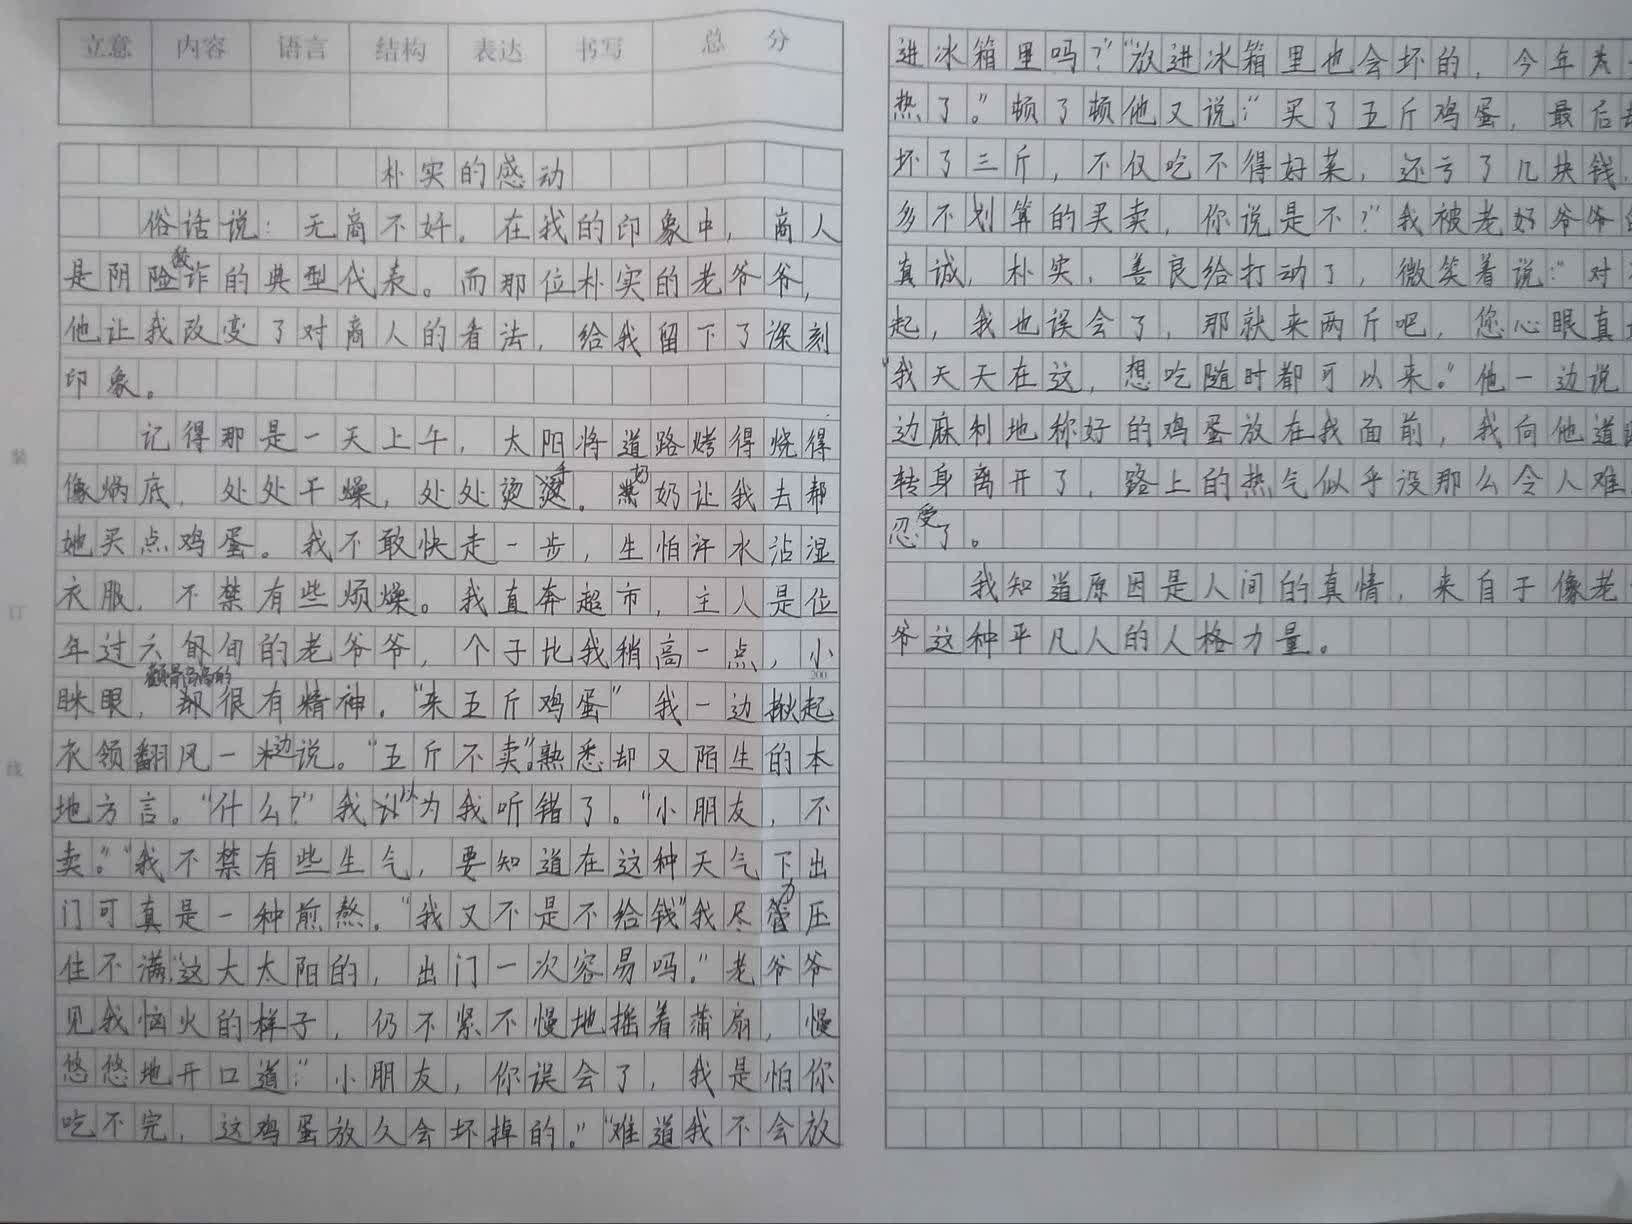 立意 内容 语言 结构 表达 书写 总 分
朴实的感动
俗话说：无商不奸。在我的印象中，商人
是阴险狡诈的典型代表。而那位朴实的老爷爷，
他让我改变了对商人的看法，给我留下了深刻
印象。
记得那是一天上午，太阳将道路烤得烧得
像焖底，处处干燥，处处烫手。奶奶让我去帮
她买点鸡蛋。我不敢快走一步，生怕汗水沾湿
衣服，不禁有些烦燥。我直奔超市，主人是位
年过六旬的老爷爷，个子比我稍高一点，小
200
眯眼，颧骨高高的却很有精神。“来五斤鸡蛋”我一边揪起
衣领翻风一边说。“五斤不卖”。熟悉却又陌生的本
地方言。“什么？”我以为我听错了。“小朋友，不
卖。”“我不禁有些生气，要知道在这种天气下出
门可真是一种煎熬。“我又不是不给钱”我尽力压
住不满，“这大太阳的，出门一次容易吗。”老爷爷
见我恼火的样子，仍不紧不慢地摇着蒲扇，慢
悠悠地开口道：“小朋友，你误会了，我是怕你
吃不完，这鸡蛋放久会坏掉的。”“难道我不会放
进冰箱里吗？”“放进冰箱里也会坏的，今年太
热了。”顿了顿他又说：“买了五斤鸡蛋，最后
坏了三斤，不仅吃不得好菜，还亏了几块钱，
多不划算的买卖，你说是不？”我被老好爷爷
真诚，朴实，善良给打动了，微笑着说：“对
起，我也误会了，那就来两斤吧，您心眼真
“我天天在这，想吃随时都可以来。”他一边说
边麻利地称好的鸡蛋放在我面前，我向他道
转身离开了，路上的热气似乎没那么令人难
忍受了。
我知道原因是人间的真情，来自于像老
爷这种平凡人的人格力量。
装
订
线